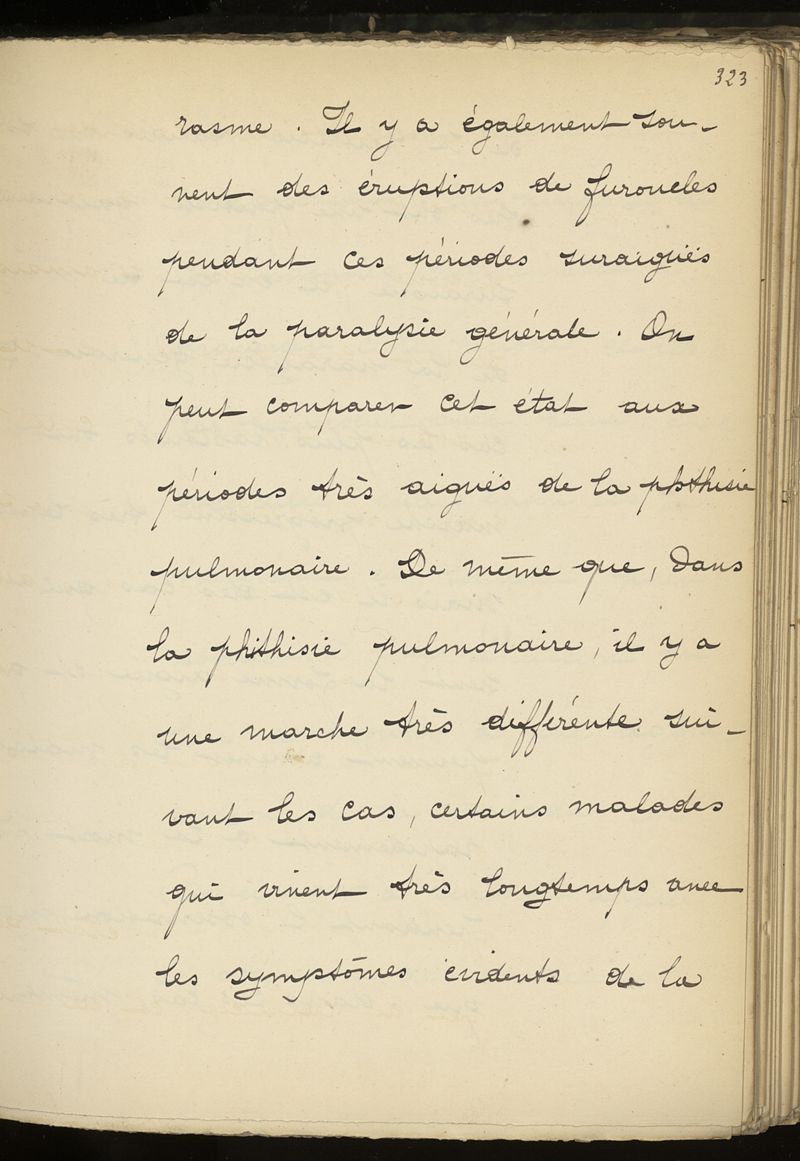 323
rasme. Il y a également sou-
vent des éruptions de furoncles
pendant ces périodes suraiguës
de la paralysie générale. On
peut comparer cet état aux
périodes très aiguës de la phthisie
pulmonaire. De même que, dans
la phthisie pulmonaire, il y a
une marche très différente sui-
vant les cas, certains malades
qui vivent très longtemps avec
les symptômes évidents de la